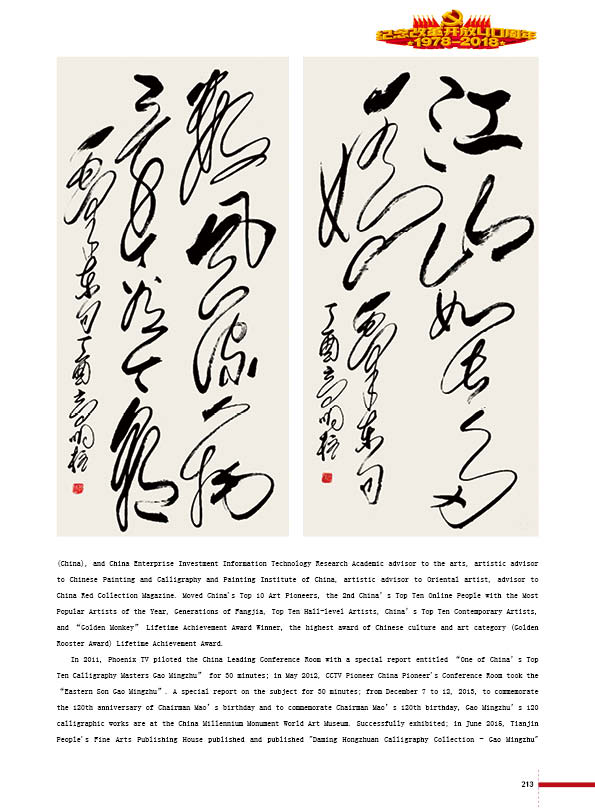 纪念改革开放40周年
1978-2018
江山如此多
娇
毛泽东句
丁酉 高明柱
数风流人物
还看今朝
毛泽东句丁酉高明柱
(China), and China Enterprise Investment Information Technology Research Academic advisor to the arts, artistic advisor
to Chinese Painting and Calligraphy and Painting Institute of China, artistic advisor to Oriental artist, advisor to
China Red Collection Magazine. Moved China's Top 10 Art Pioneers, the 2nd China’s Top Ten Online People with the Most
Popular Artists of the Year, Generations of Fangjia, Top Ten Hall-level Artists, China’s Top Ten Contemporary Artists,
and “Golden Monkey” Lifetime Achievement Award Winner, the highest award of Chinese culture and art category (Golden
Rooster Award) Lifetime Achievement Award.
In 2011, Phoenix TV piloted the China Leading Conference Room with a special report entitled “One of China’s Top
Ten Calligraphy Masters Gao Mingzhu” for 30 minutes; in May 2012, CCTV Pioneer China Pioneer's Conference Room took the
“Eastern Son Gao Mingzhu”. A special report on the subject for 30 minutes; from December 7 to 12, 2013, to commemorate
the 120th anniversary of Chairman Mao’s birthday and to commemorate Chairman Mao’s 120th birthday, Gao Mingzhu’s 120
calligraphic works are at the China Millennium Monument World Art Museum. Successfully exhibited; in June 2015, Tianjin
People's Fine Arts Publishing House published and published "Daming Hongzhuan Calligraphy Collection - Gao Mingzhu"
213